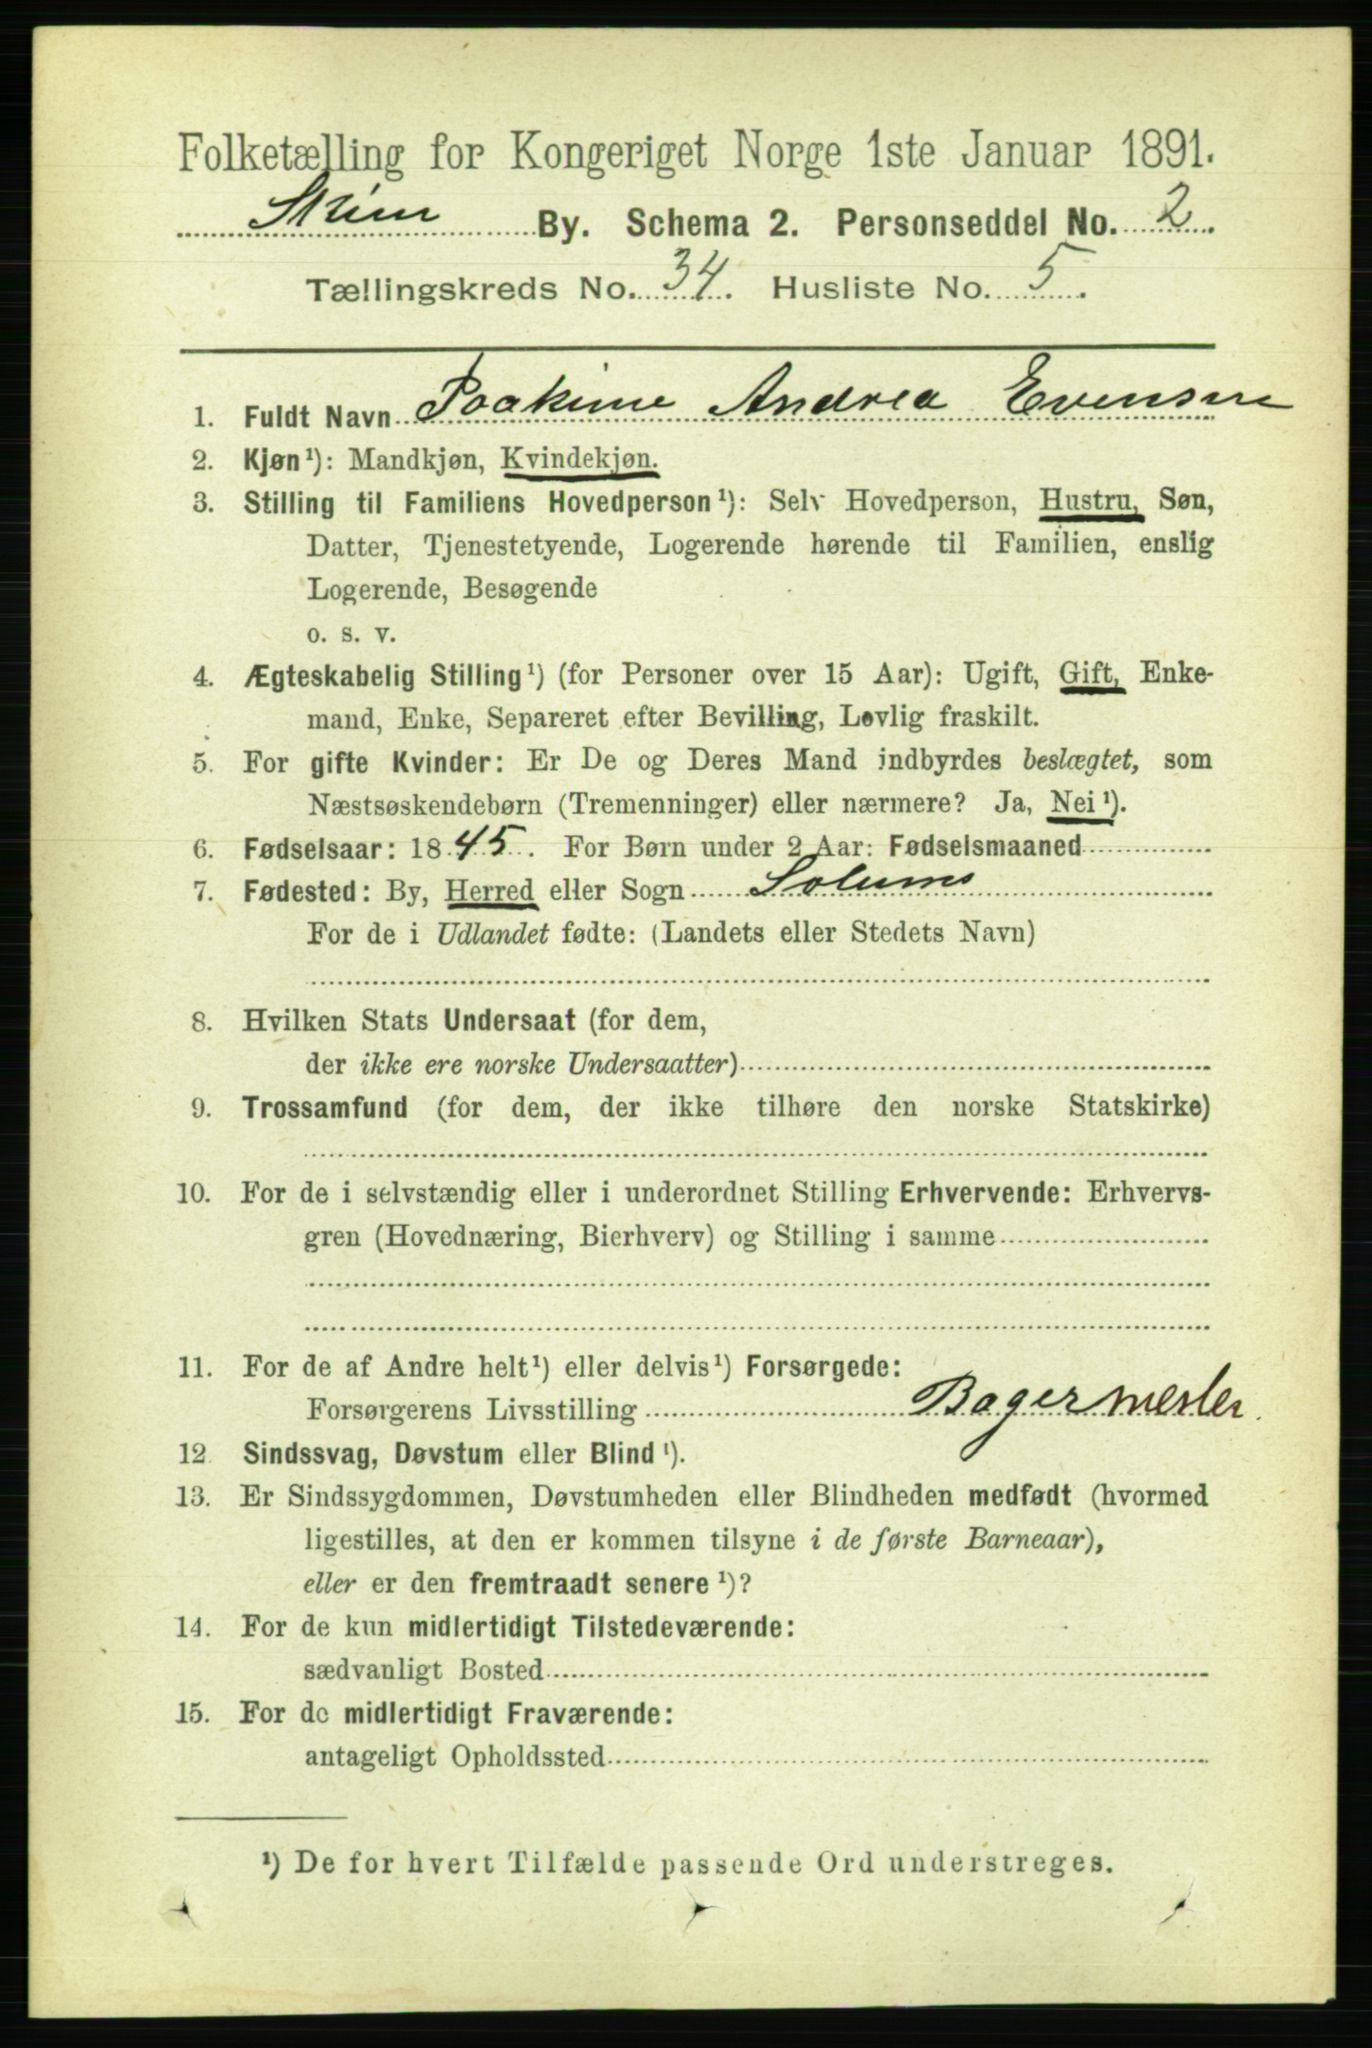 Folketælling for Kongeriget Norge 1ste Januar 1891.
Skien By. Schema 2. Personseddel No. 2.
Tællingskreds No. 34. Husliste No. 5.
1. Fuldt Navn Joakime Andrea Evensen
2. Kjøn¹): Mandkjøn, Kvindekjøn.
3. Stilling til Familiens Hovedperson¹): Selv Hovedperson, Hustru, Søn,
Datter, Tjenestetyende, Logerende hørende til Familien, enslig
Logerende, Besøgende
o. s. v.
4. Ægteskabelig Stilling¹) (for Personer over 15 Aar): Ugift, Gift, Enke-
mand, Enke, Separeret efter Bevilling, Lovlig fraskilt.
5. For gifte Kvinder: Er De og Deres Mand indbyrdes beslægtet, som
Næstsøskendebørn (Tremenninger) eller nærmere? Ja, Nei¹).
6. Fødselsaar: 1845. For Børn under 2 Aar: Fødselsmaaned
7. Fødested: By, Herred eller Sogn Solums
For de i Udlandet fødte: (Landets eller Stedets Navn)
8. Hvilken Stats Undersaat (for dem,
der ikke ere norske Undersaatter)
9. Trossamfund (for dem, der ikke tilhøre den norske Statskirke)
10. For de i selvstændig eller i underordnet Stilling Erhvervende: Erhvervs-
gren (Hovednæring, Bierhverv) og Stilling i samme
11. For de af Andre helt¹) eller delvis¹) Forsørgede:
Forsørgerens Livsstilling Bagermester.
12. Sindssvag, Døvstum eller Blind¹).
13. Er Sindssygdommen, Døvstumheden eller Blindheden medfødt (hvormed
ligestilles, at den er kommen tilsyne i de første Barneaar),
eller er den fremtraadt senere¹)?
14. For de kun midlertidigt Tilstedeværende:
sædvanligt Bosted
15. For de midlertidigt Fraværende:
antageligt Opholdssted
¹) De for hvert Tilfælde passende Ord understreges.